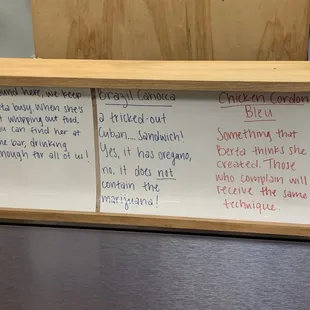 ound here, we keep
ta busy. When she's
t whipping out food,
ou can find her at
e bar, drinking
nough for all of us!
Brazil Carioca
a tricked-out
Cuban.... Sandwich!
Yes, it has oregano,
no, it does not
contain the
marijuana!
Chicken Cordon
Bleu
Something that
Berta thinks she
created. Those
who complain will
receive the same
technique.